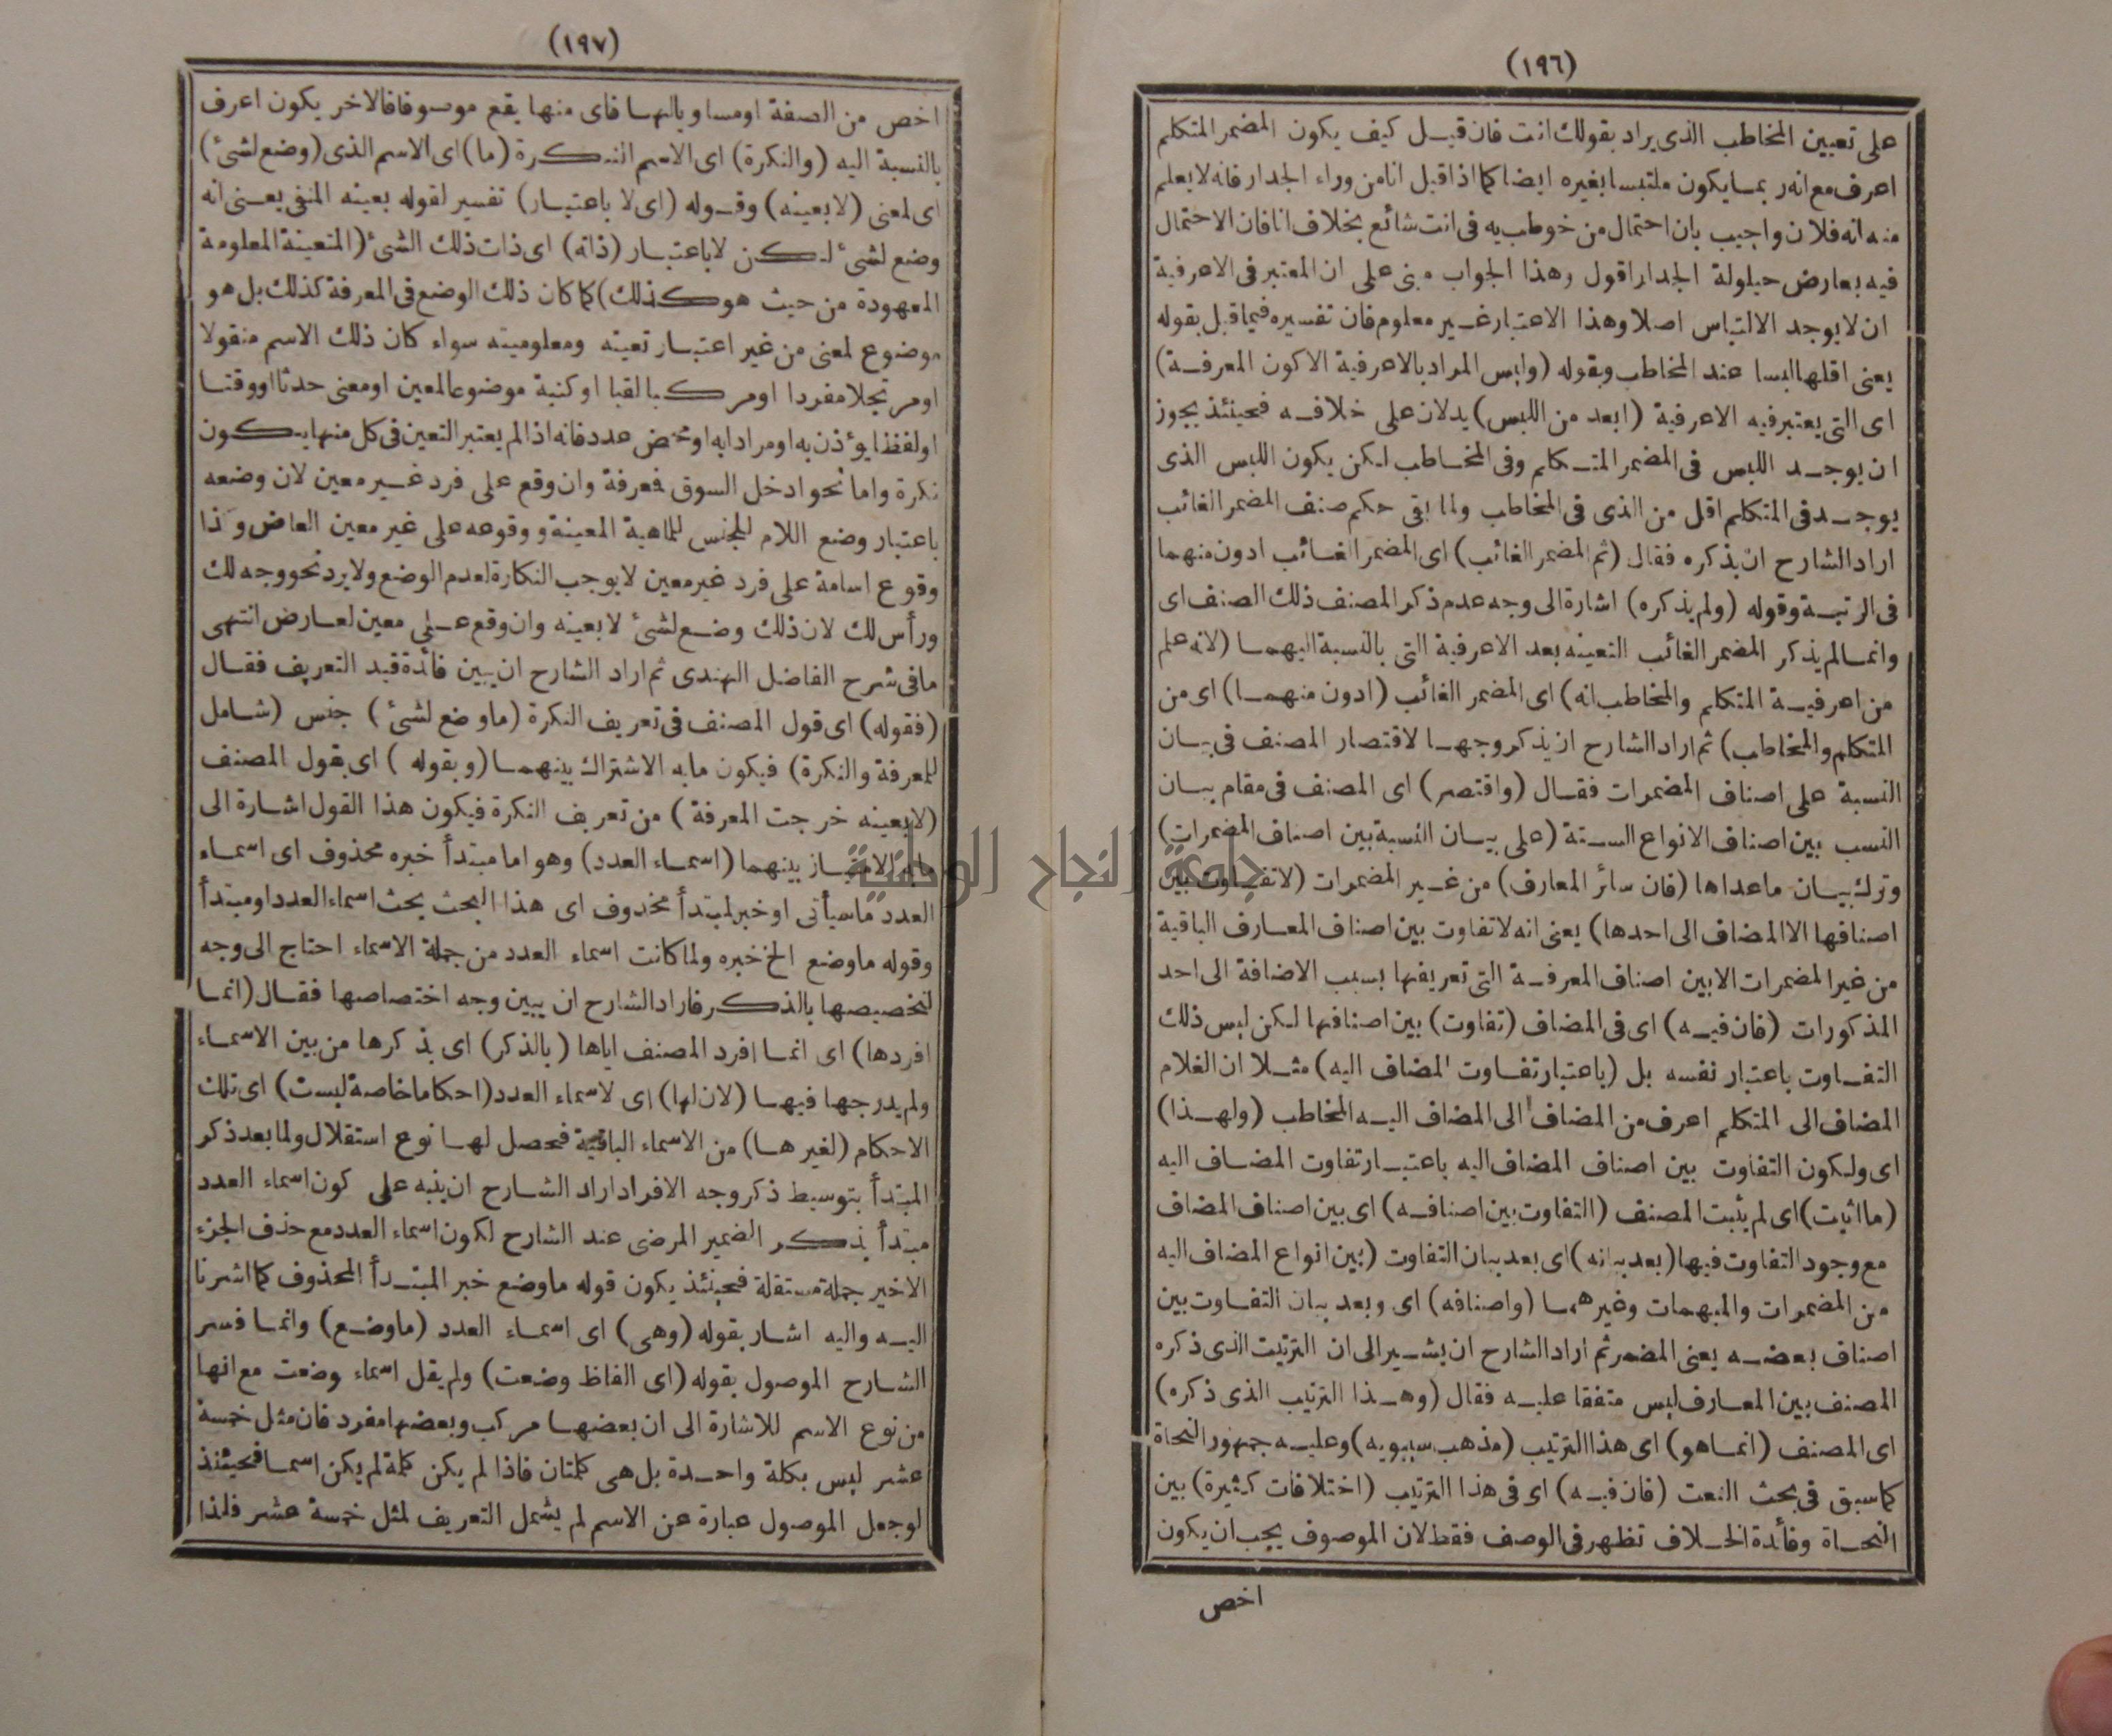 (١٩٦)
على تعيين المخاطب الذى يراد بقولك انت فان قيل كيف يكون المضمر المتكلم
اعرف مع انه ربما يكون ملتبسا بغيره ايضا كما اذا قيل انا من وراء الجدار فانه لا يعلم
منه انه فلان واجيب بان احتمال من خوطب به فى انت شائع بخلاف انا فان الاحتمال
فيه بعارض حيلولة الجدار اقول وهذا الجواب مبنى على ان المعتبر فى الاعرفية
ان لا يوجد الالتباس اصلا وهذا الاعتبار غير معلوم فان تفسيره فيما قبل بقوله
يعنى اقلها لبسا عند المخاطب وبقوله (وليس المراد بالاعرفية الا كون المعرفة)
اى التى يعتبر فيه الاعرفية (ابعد من اللبس) يدلان على خلافه فحينئذ يجوز
ان يوجد اللبس فى المضمر المتكلم وفى المخاطب لكن يكون اللبس الذى
يوجد فى المتكلم اقل من الذى فى المخاطب ولما بقى حكم صنف المضمر الغائب
اراد الشارح ان يذكره فقال (ثم المضمر الغائب) اى المضمر الغائب ادون منهما
فى الرتبة وقوله (ولم يذكره) اشارة الى وجه عدم ذكر المصنف ذلك الصنف اى
وانما لم يذكر المضمر الغائب التعينه بعد الاعرفية التى بالنسبة اليهما (لانه علم
من اعرفية المتكلم والمخاطب انه) اى المضمر الغائب (ادون منهما) اى من
المتكلم والمخاطب) ثم اراد الشارح ان يذكر وجها لاقتصار المصنف فى بيان
النسبة على اصناف المضمرات فقال (واقتصر) اى المصنف فى مقام بيان
النسب بين اصناف الانواع الستة (على بيان النسبة بين اصناف المضمرات)
وترك بيان ماعداها (فان سائر المعارف) من غير المضمرات (لا تفاوت بين
اصنافها الا المضاف الى احدها) يعنى انه لا تفاوت بين اصناف المعارف الباقية
من غير المضمرات الا بين اصناف المعرفة التى تعريفها بسبب الاضافة الى احد
المذكورات (فان فيه) اى فى المضاف (تفاوت) بين اصنافها لكن ليس ذلك
التفاوت باعتبار نفسه بل (باعتبار تفاوت المضاف اليه) مثلا ان الغلام
المضاف الى المتكلم اعرف من المضاف الى المضاف اليه المخاطب (ولهذا)
اى وليكون التفاوت بين اصناف المضاف اليه باعتبار تفاوت المضاف اليه
(ما اثبت) اى لم يثبت المصنف (التفاوت بين اصنافه) اى بين اصناف المضاف
مع وجود التفاوت فيها (بعد بيانه) اى بعد بيان التفاوت (بين انواع المضاف اليه
من المضمرات والمبهمات وغيرهما (واصنافه) اى وبعد بيان التفاوت بين
اصناف بعضه يعنى المضمر ثم اراد الشارح ان يشير الى ان الترتيب الذى ذكره
المصنف بين المعارف ليس متفقا عليه فقال (وهذا الترتيب الذى ذكره)
اى المصنف (انما هو) اى هذا الترتيب (مذهب سيبويه) وعليه جمهور النحاة
كما سبق فى بحث النعت (فان فيه) اى فى هذا الترتيب (اختلافات كثيرة) بين
النحاة وفائدة الخلاف تظهر فى الوصف فقط لان الموصوف يجب ان يكون
اخص
(١٩٧)
اخص من الصفة او مساويا لها فاى منها يقع موصوفا فالاخر يكون اعرف
بالنسبة اليه (والنكرة) اى الاسم النكرة (ما) اى الاسم الذى (وضع لشئ)
اى لمعنى (لا بعينه) وقوله (اى لا باعتبار) تفسير لقوله بعينه المنفى يعنى انه
وضع لشئ لكن لا باعتبار (ذاته) اى ذات ذلك الشئ (المتعينة المعلومة
المعهودة من حيث هو كذلك) كما كان ذلك الوضع فى المعرفة كذلك بل هو
موضوع لمعنى من غير اعتبار تعينه ومعلوميته سواء كان ذلك الاسم منقولا
او مرتجلا مفردا او مركبا لقبا او كنية موضوعا لمعين او معنى حدثا او وقتا
او لفظا يؤذن به او مرادا به او محض عدد فانه اذا لم يعتبر التعين فى كل منها يكون
نكرة واما نحو ادخل السوق فمعرفة وان وقع على فرد غير معين لان وضعه
باعتبار وضع اللام للجنس للماهية المعينة ووقوعه على غير معين العارض وكذا
وقوع اسامة على فرد غير معين لا يوجب النكارة لعدم الوضع ولا يرد نحو وجه لك
ورأس لك لان ذلك وضع لشئ لا بعينه وان وقع على معين لعارض انتهى
ما فى شرح الفاضل الهندى ثم اراد الشارح ان يبين فائدة قيد التعريف فقال
(فقوله) اى قول المصنف فى تعريف النكرة (ما وضع لشئ) جنس (شامل
للمعرفة والنكرة) فيكون ما به الاشتراك بينهما (وبقوله) اى بقول المصنف
(لا بعينه خرجت المعرفة) من تعريف النكرة فيكون هذا القول اشارة الى
ما به الامتياز بينهما (اسماء العدد) وهو اما مبتدأ خبره محذوف اى اسماء
العدد ما سيأتى او خبر لمبتدأ محذوف اى هذا البحث بحث اسماء العدد او مبتدأ
وقوله ما وضع الخ خبره ولما كانت اسماء العدد من جملة الاسماء احتاج الى وجه
لتخصيصها بالذكر فاراد الشارح ان يبين وجه اختصاصها فقال (انما
افردها) اى انما افرد المصنف اياها (بالذكر) اى بذكرها من بين الاسماء
ولم يدرجها فيها (لان لها) اى لاسماء العدد (احكاما خاصة ليست) اى تلك
الاحكام (لغيرها) من الاسماء الباقية فحصل لها نوع استقلال ولما بعد ذكر
المبتدأ بتوسيط ذكر وجه الافراد اراد الشارح ان ينبه على كون اسماء العدد
مبتدأ بذكر الضمير المرضى عند الشارح لكون اسماء العدد مع حذف الجزء
الاخير جملة مستقلة فحينئذ يكون قوله ما وضع خبر المبتدأ المحذوف كما اشرنا
اليه واليه اشار بقوله (وهى) اى اسماء العدد (ما وضع) وانما فسر
الشارح الموصول بقوله (اى الفاظ وضعت) ولم يقل اسماء وضعت مع انها
من نوع الاسم للاشارة الى ان بعضها مركب وبعضها مفرد فان مثل خمسة
عشر ليس بكلمة واحدة بل هى كلمتان فاذا لم يكن كلمة لم يكن اسما فحينئذ
لو جعل الموصول عبارة عن الاسم لم يشمل التعريف لمثل خمسة عشر فلذا
جامعة النجاح الوطنية